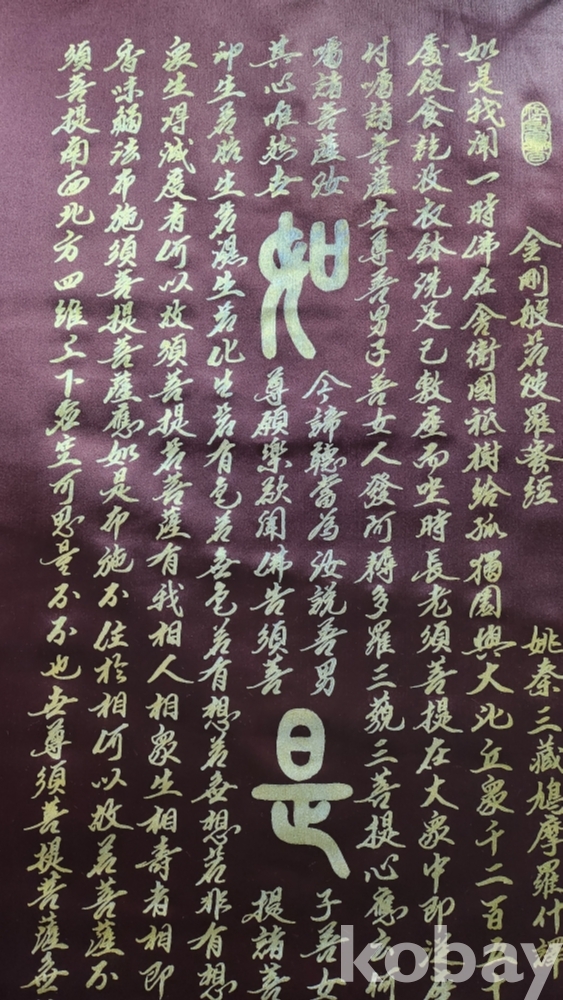 金剛般若波羅蜜經
姚秦三藏鳩摩羅什譯
如是我聞一時佛在舍衛國祇樹給孤獨園與大比丘眾千二百五十
處飯食訖收衣鉢洗足已敷座而坐時長老須菩提在大眾中即從座
付囑諸菩薩世尊善男子善女人發阿耨多羅三藐三菩提心應云何
囑諸菩薩汝
今諦聽當為汝說善男
子善女
其心唯然世
尊願樂欲聞佛告須菩
提諸菩
如
是
卵生若胎生若濕生若化生若有色若無色若有想若無想若非有想
眾生得滅度者何以故須菩提若菩薩有我相人相眾生相壽者相即
香味觸法布施須菩提菩薩應如是布施不住於相何以故若菩薩不
須菩提南西北方四維上下虛空可思量不不也世尊須菩提菩薩無
kobay